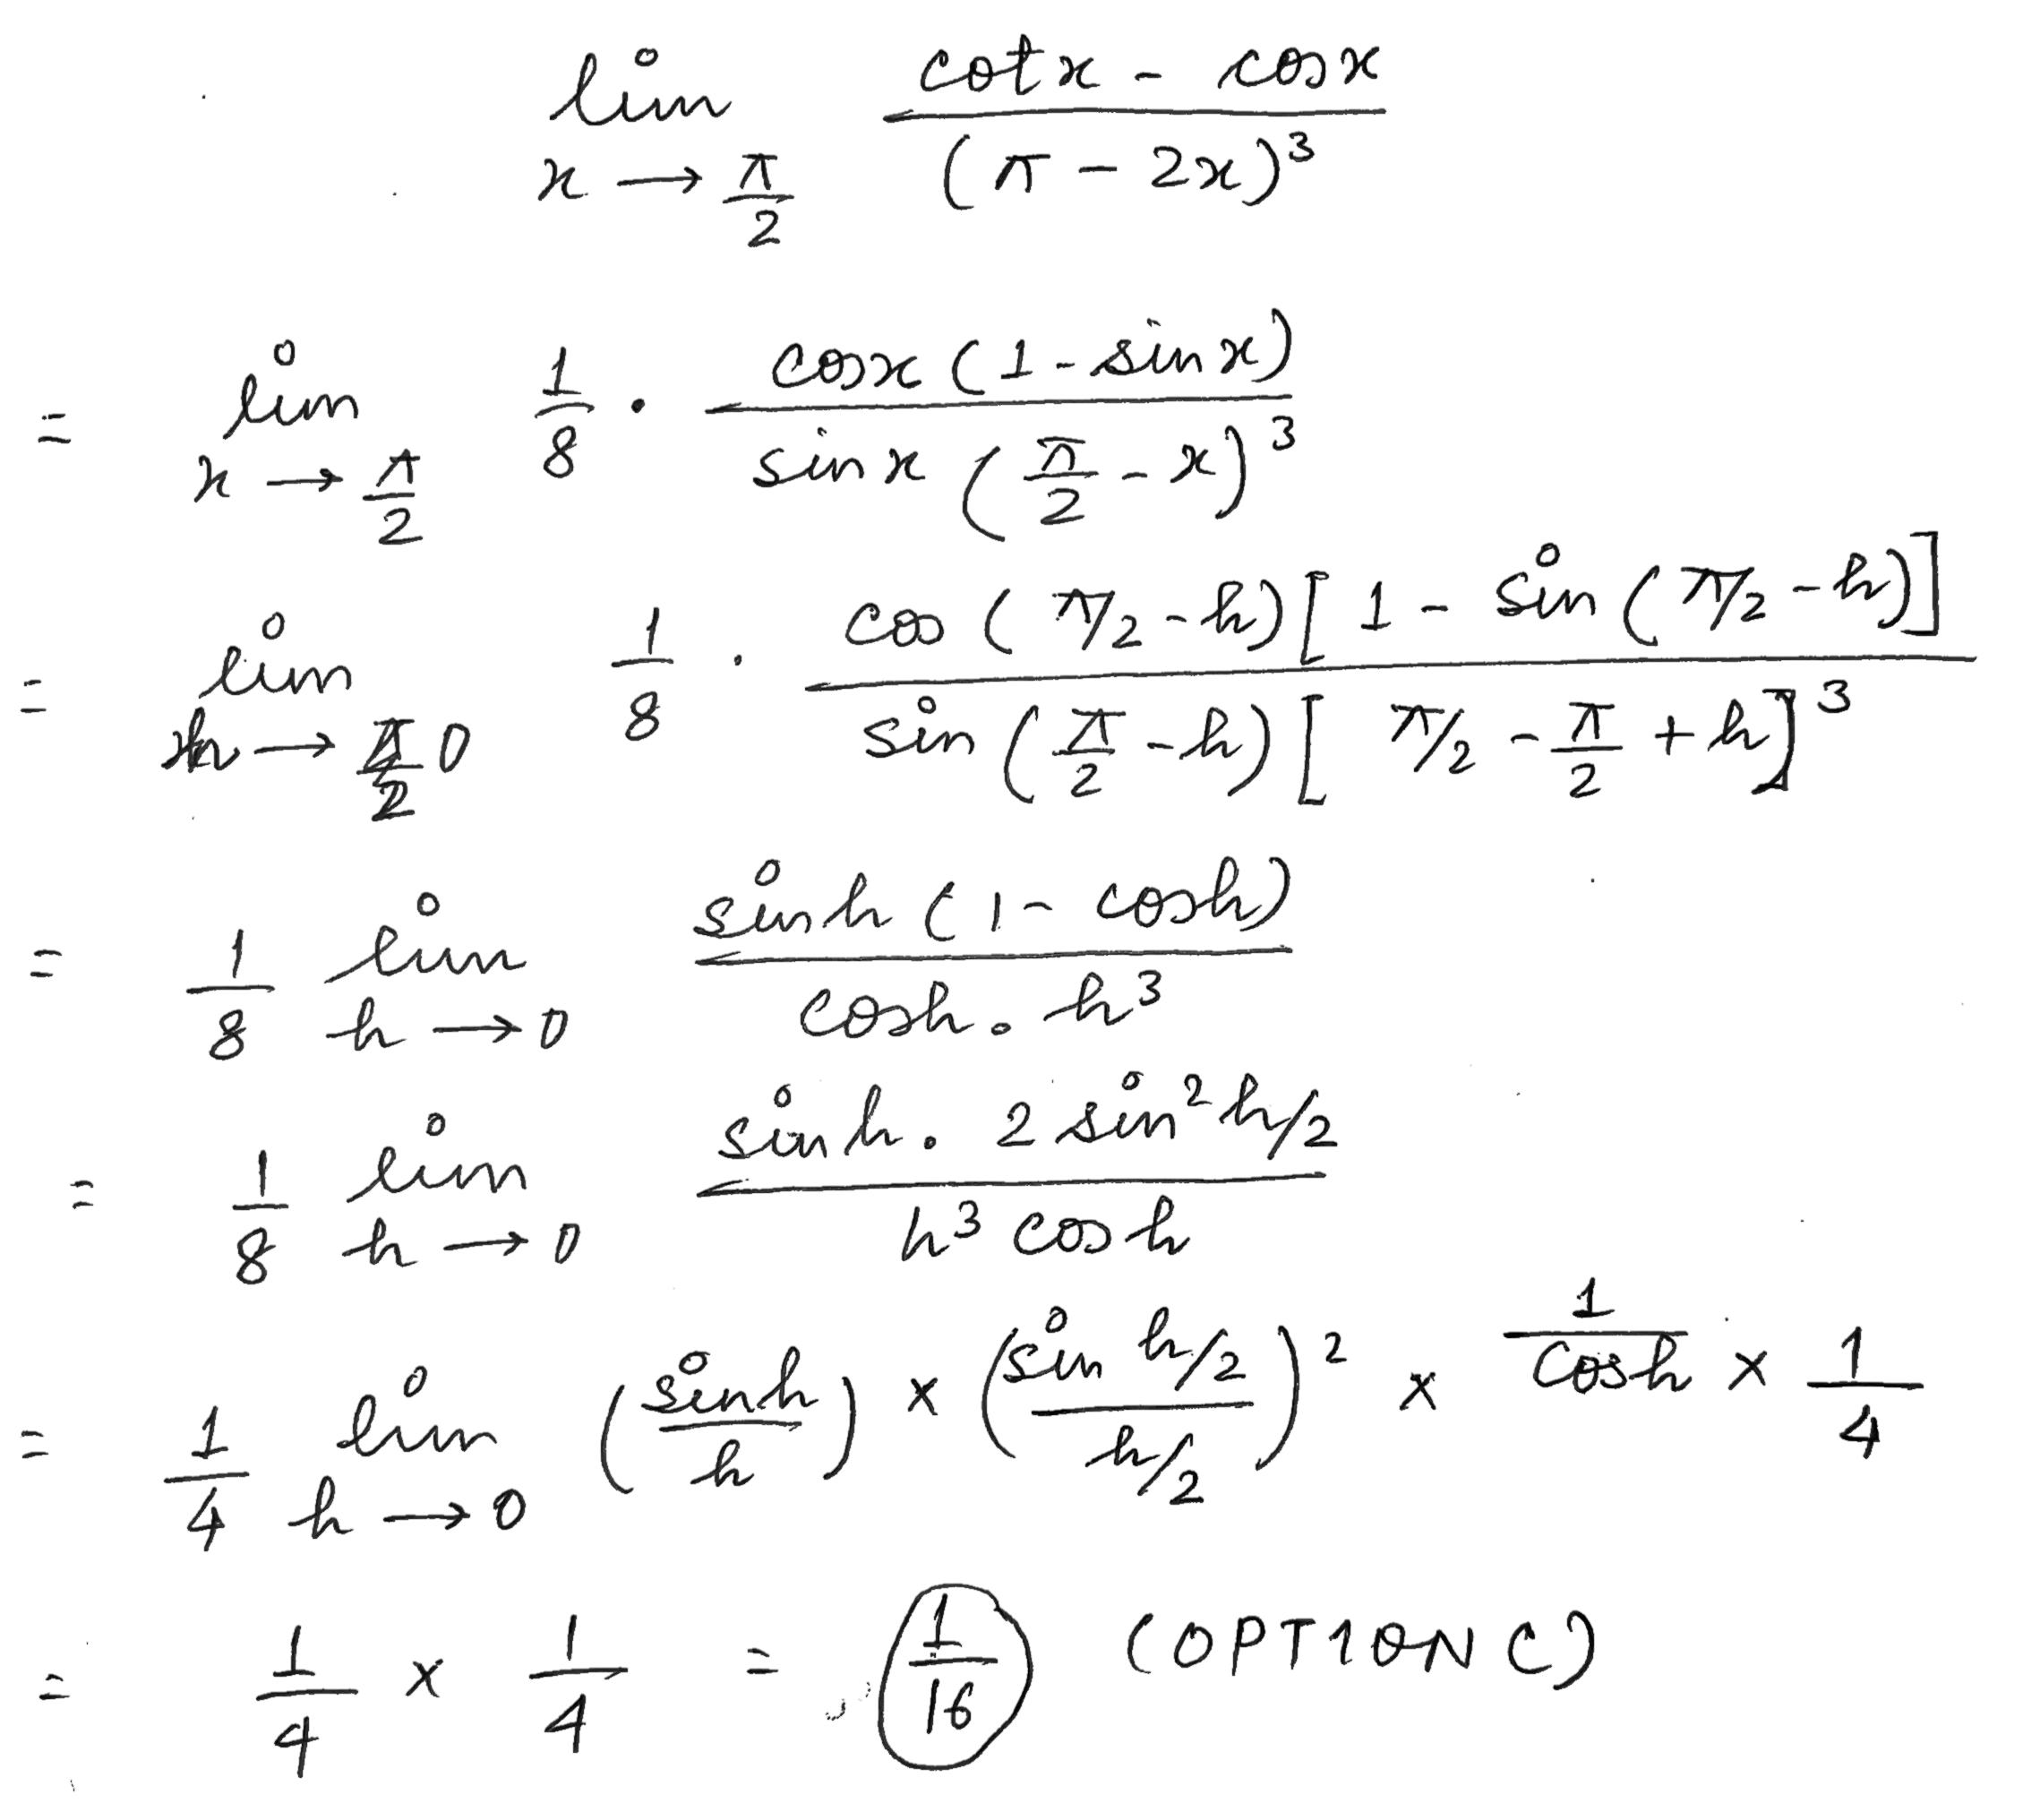 lim x→π/2 (cotx - cosx)/(π - 2x)³
= lim x→π/2 1/8 · cosx (1 - sinx)/sinx (π/2 - x)³
= lim h→0 1/8 · cos (π/2 - h)[1 - sin (π/2 - h)]/sin (π/2 - h)[π/2 - π/2 + h]³
= 1/8 lim h→0 sinh (1 - cosh)/cosh · h³
= 1/8 lim h→0 sinh · 2 sin² h/2/h³ cosh
= 1/4 lim h→0 (sinh/h) × (sin h/2/h/2)² × 1/cosh × 1/4
= 1/4 × 1/4 = 1/16 (OPTION C)